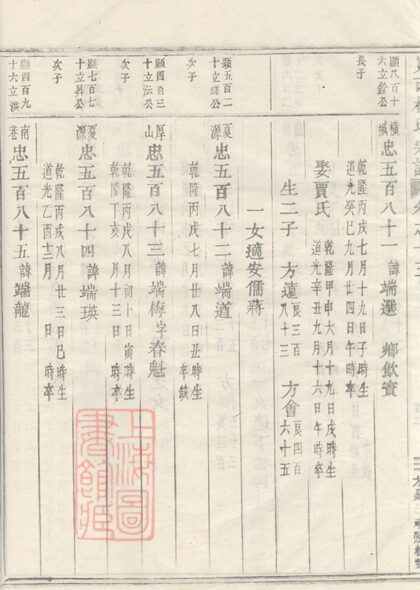 顯八百十
六立鎧公
長子
橫
城
忠五百八十一 諱端選 鄉飲賓
乾隆丙戌七月十九日子時生
道光癸巳九月廿四日午時卒
娶賈氏
乾隆甲申六月十九日戌時生
道光辛丑九月十六日午時卒
生二子 方遠
良三百
八十三
方會
良四百
六十五
一女適安儒蔣
顯五百二
十立鐸公
次子
夏
源
忠五百八十二 諱端道
乾隆丙戌七月廿八日丑時生
卒缺
顯四百三
十立法公
次子
厚
山
忠五百八十三 諱端梅 字春魁
乾隆丙戌八月初十日寅時生
乾隆丁亥八月十三日 時卒
顯七百七
十立昇公
次子
夏
源
忠五百八十四 諱端瑛
乾隆丙戌八月廿三日巳時生
道光乙酉十二月 日 時卒
顯四百九
十六立洪
南
巷
忠五百八十五 諱端龍
上海圖
書館藏